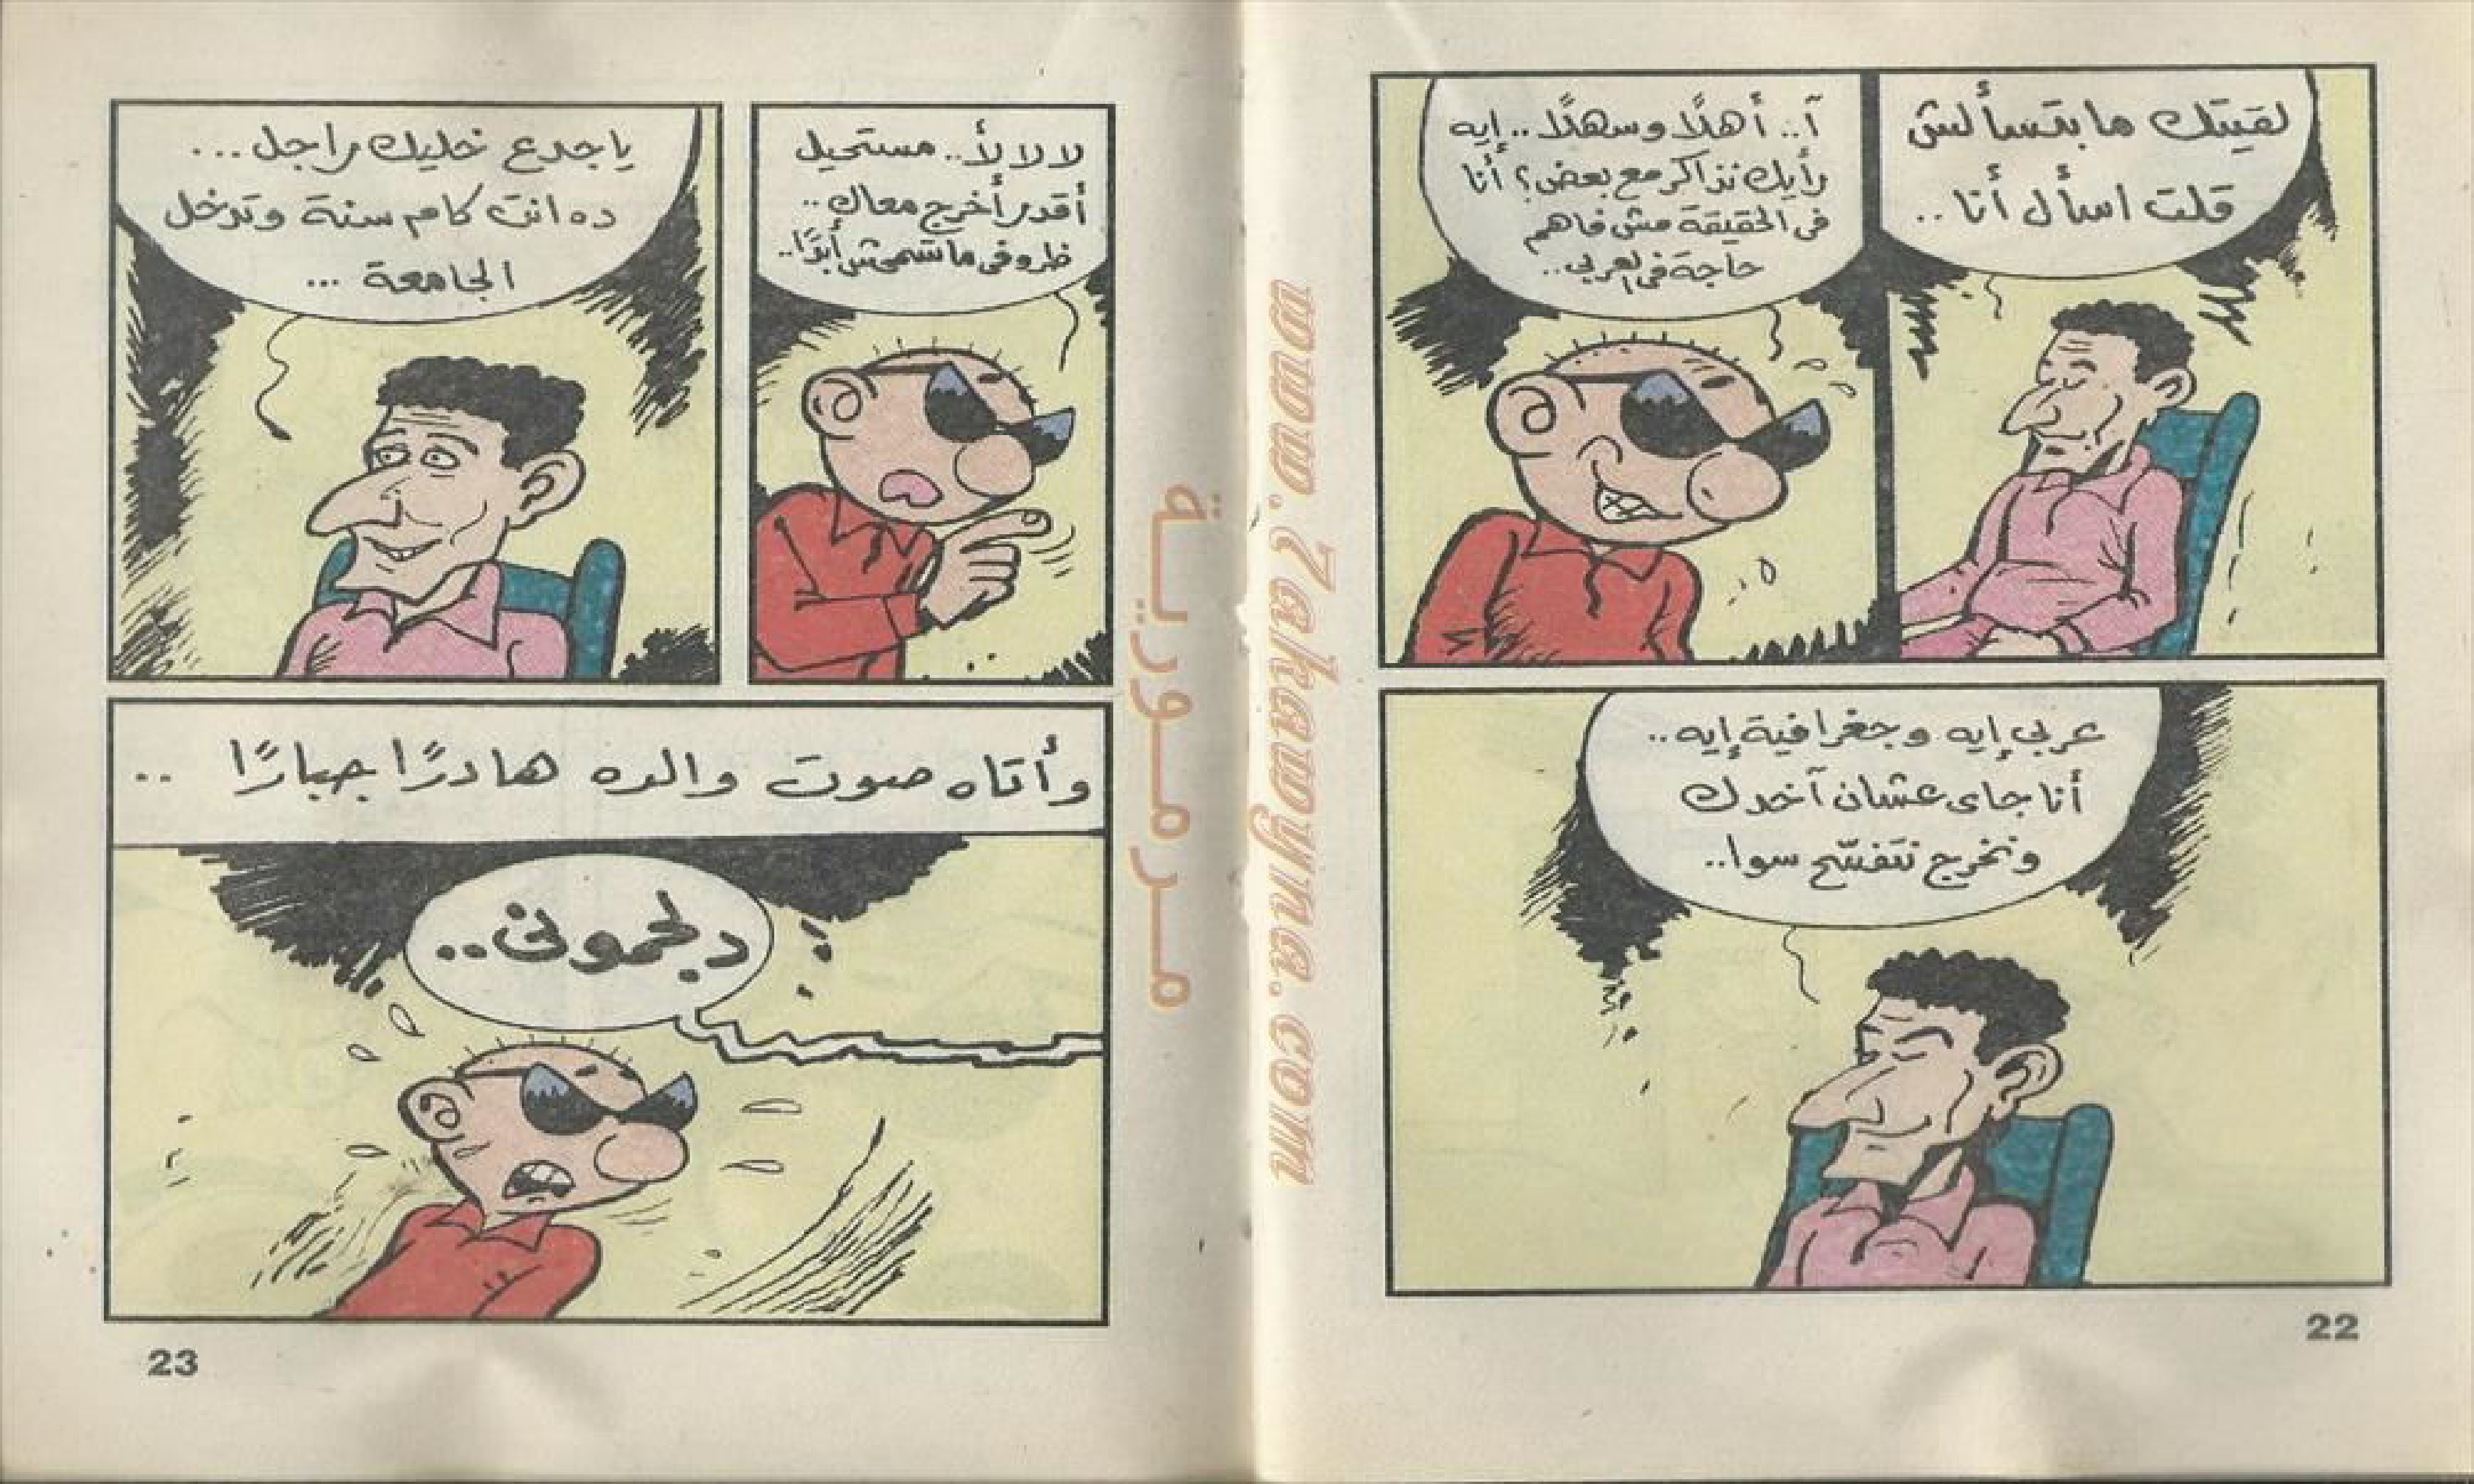 لقيتك ما بتسألش
قلت اسأل أنا ..
آ .. أهلًا وسهلًا .. إيه
رأيك نذاكر مع بعض؟ أنا
فى الحقيقة مش فاهم
حاجة فى العربى ..
عربى إيه وجغرافية إيه ..
أنا جاى عشان آخدك
ونخرج نتفسّح سوا ..
22
لا لا لأ .. مستحيل
أقدر أخرج معاك ..
ظروفى ماتسمحش أبدًا ..
يا جدع خليك راجل ...
ده انت كام سنة وتدخل
الجامعة ...
وأتاه صوت والده هادرًا جبارًا ..
دلجمونى ..
23
مرمورية
www.7akawyna.com